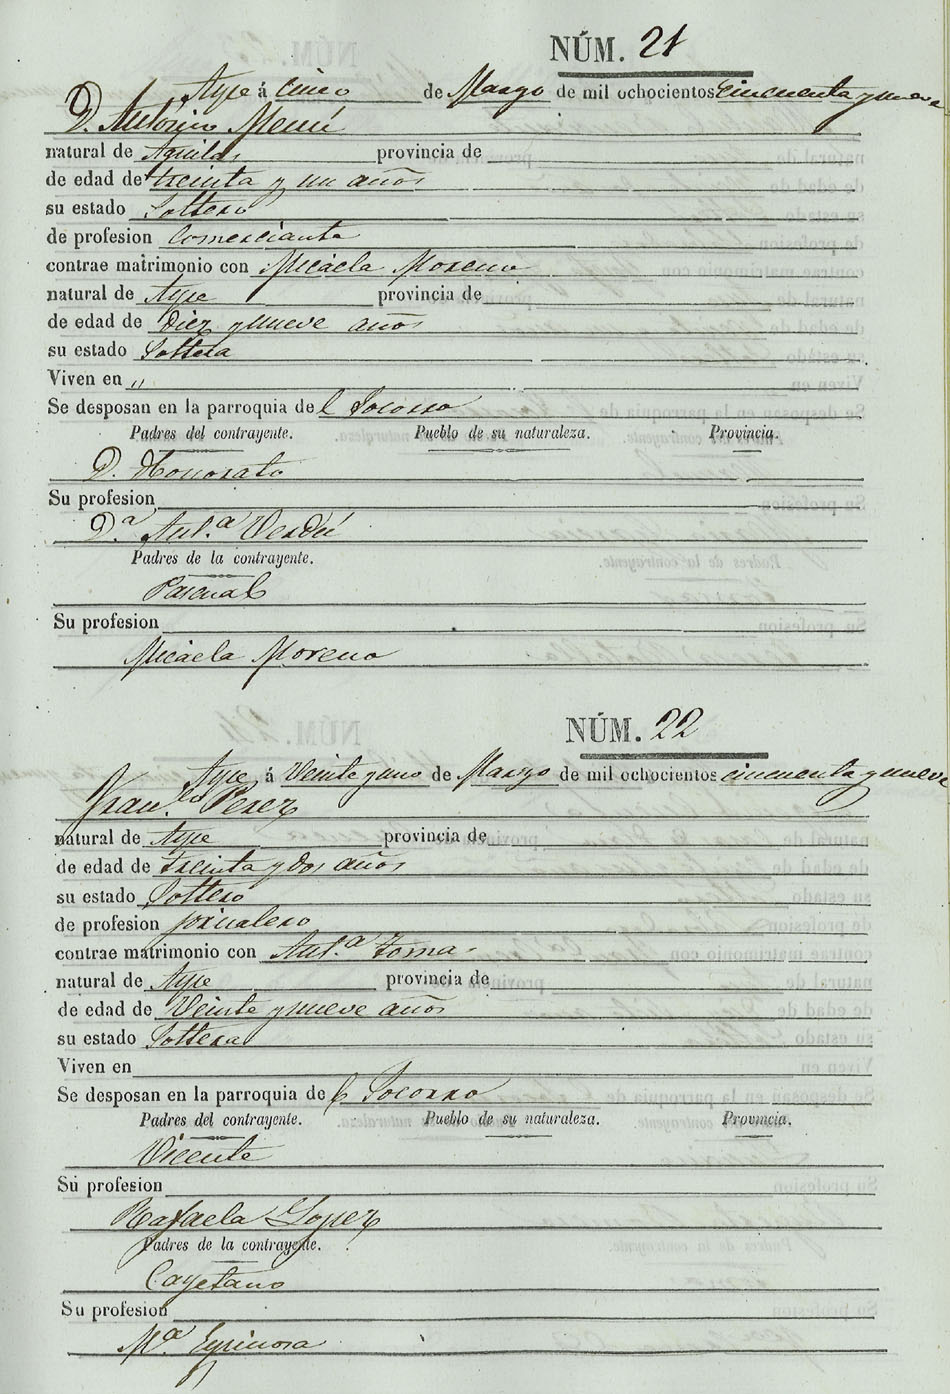 NÚM. 21
Aspe á Cinco de Marzo de mil ochocientos cincuenta y nueve
D. Antonio
natural de provincia de
de edad de treinta y un años
su estado Soltero
de profesion Comerciante
contrae matrimonio con Micaela Moreno
natural de Aspe provincia de
de edad de diez y nueve años
su estado Soltera
Viven en „
Se desposan en la parroquia de l Socorro
Padres del contrayente. Pueblo de su naturaleza. Provincia.
D. Honorato
Su profesion
D.ª Ant.ª Verdú
Padres de la contrayente.
Pascual
Su profesion
Micaela Moreno
NÚM. 22
Aspe á Veinte y uno de Marzo de mil ochocientos cincuenta y nueve
Fran.co Perez
natural de Aspe provincia de
de edad de treinta y dos años
su estado Soltero
de profesion jornalero
contrae matrimonio con Ant.ª Toma
natural de Aspe provincia de
de edad de Veinte y nueve años
su estado Soltera
Viven en
Se desposan en la parroquia de l Socorro
Padres del contrayente. Pueblo de su naturaleza. Provincia.
Vicente
Su profesion
Rafaela Lopez
Padres de la contrayente.
Cayetano
Su profesion
M.ª Espinosa